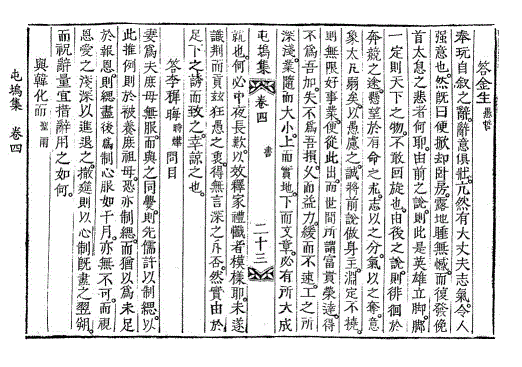 答金生 愚哲
奉玩自敘之辭辭意俱壯亢然有大丈夫志氣令人
強意也然旣曰便撤却厨房露地睡無憾而復發俛
首太息之悲者何耶由前之說則此是英雄立脚脚
一定則天下之物不敢回旋也由後之說則徘徊於
奔競之途戀望於有命之尤志以之分氣以之奪意
象太凡弱矣以愚慮之誠將前說做身主淵定不撓
則無限好事業便從此出而世間所謂富貴榮達得
不爲吾加失不爲吾損久而益力緩而不速工之所
深淺業隨而大小上而實地下而文章必有所大成
屯塢集 卷四 書 二十三
就也何必中夜長歎以效釋家禮懺者模樣耶未遂
識荆而貢玆狂愚之衷得無言深之斥否然實由於
足下之誘而致之幸諒之也
答李穉晦 問目
妻爲夫庶母無服而與之同爨則先儒許以制緦以
此推例則於被養庶祖母恐亦制緦而猶以爲未足
於報恩則緦盡後爲制心服如干月亦無不可而視
恩愛之淺深以進退之撤筵則以心制旣盡之翌朔
而祝辭量宜措辭用之如何
與韓化而
屯塢集 卷四